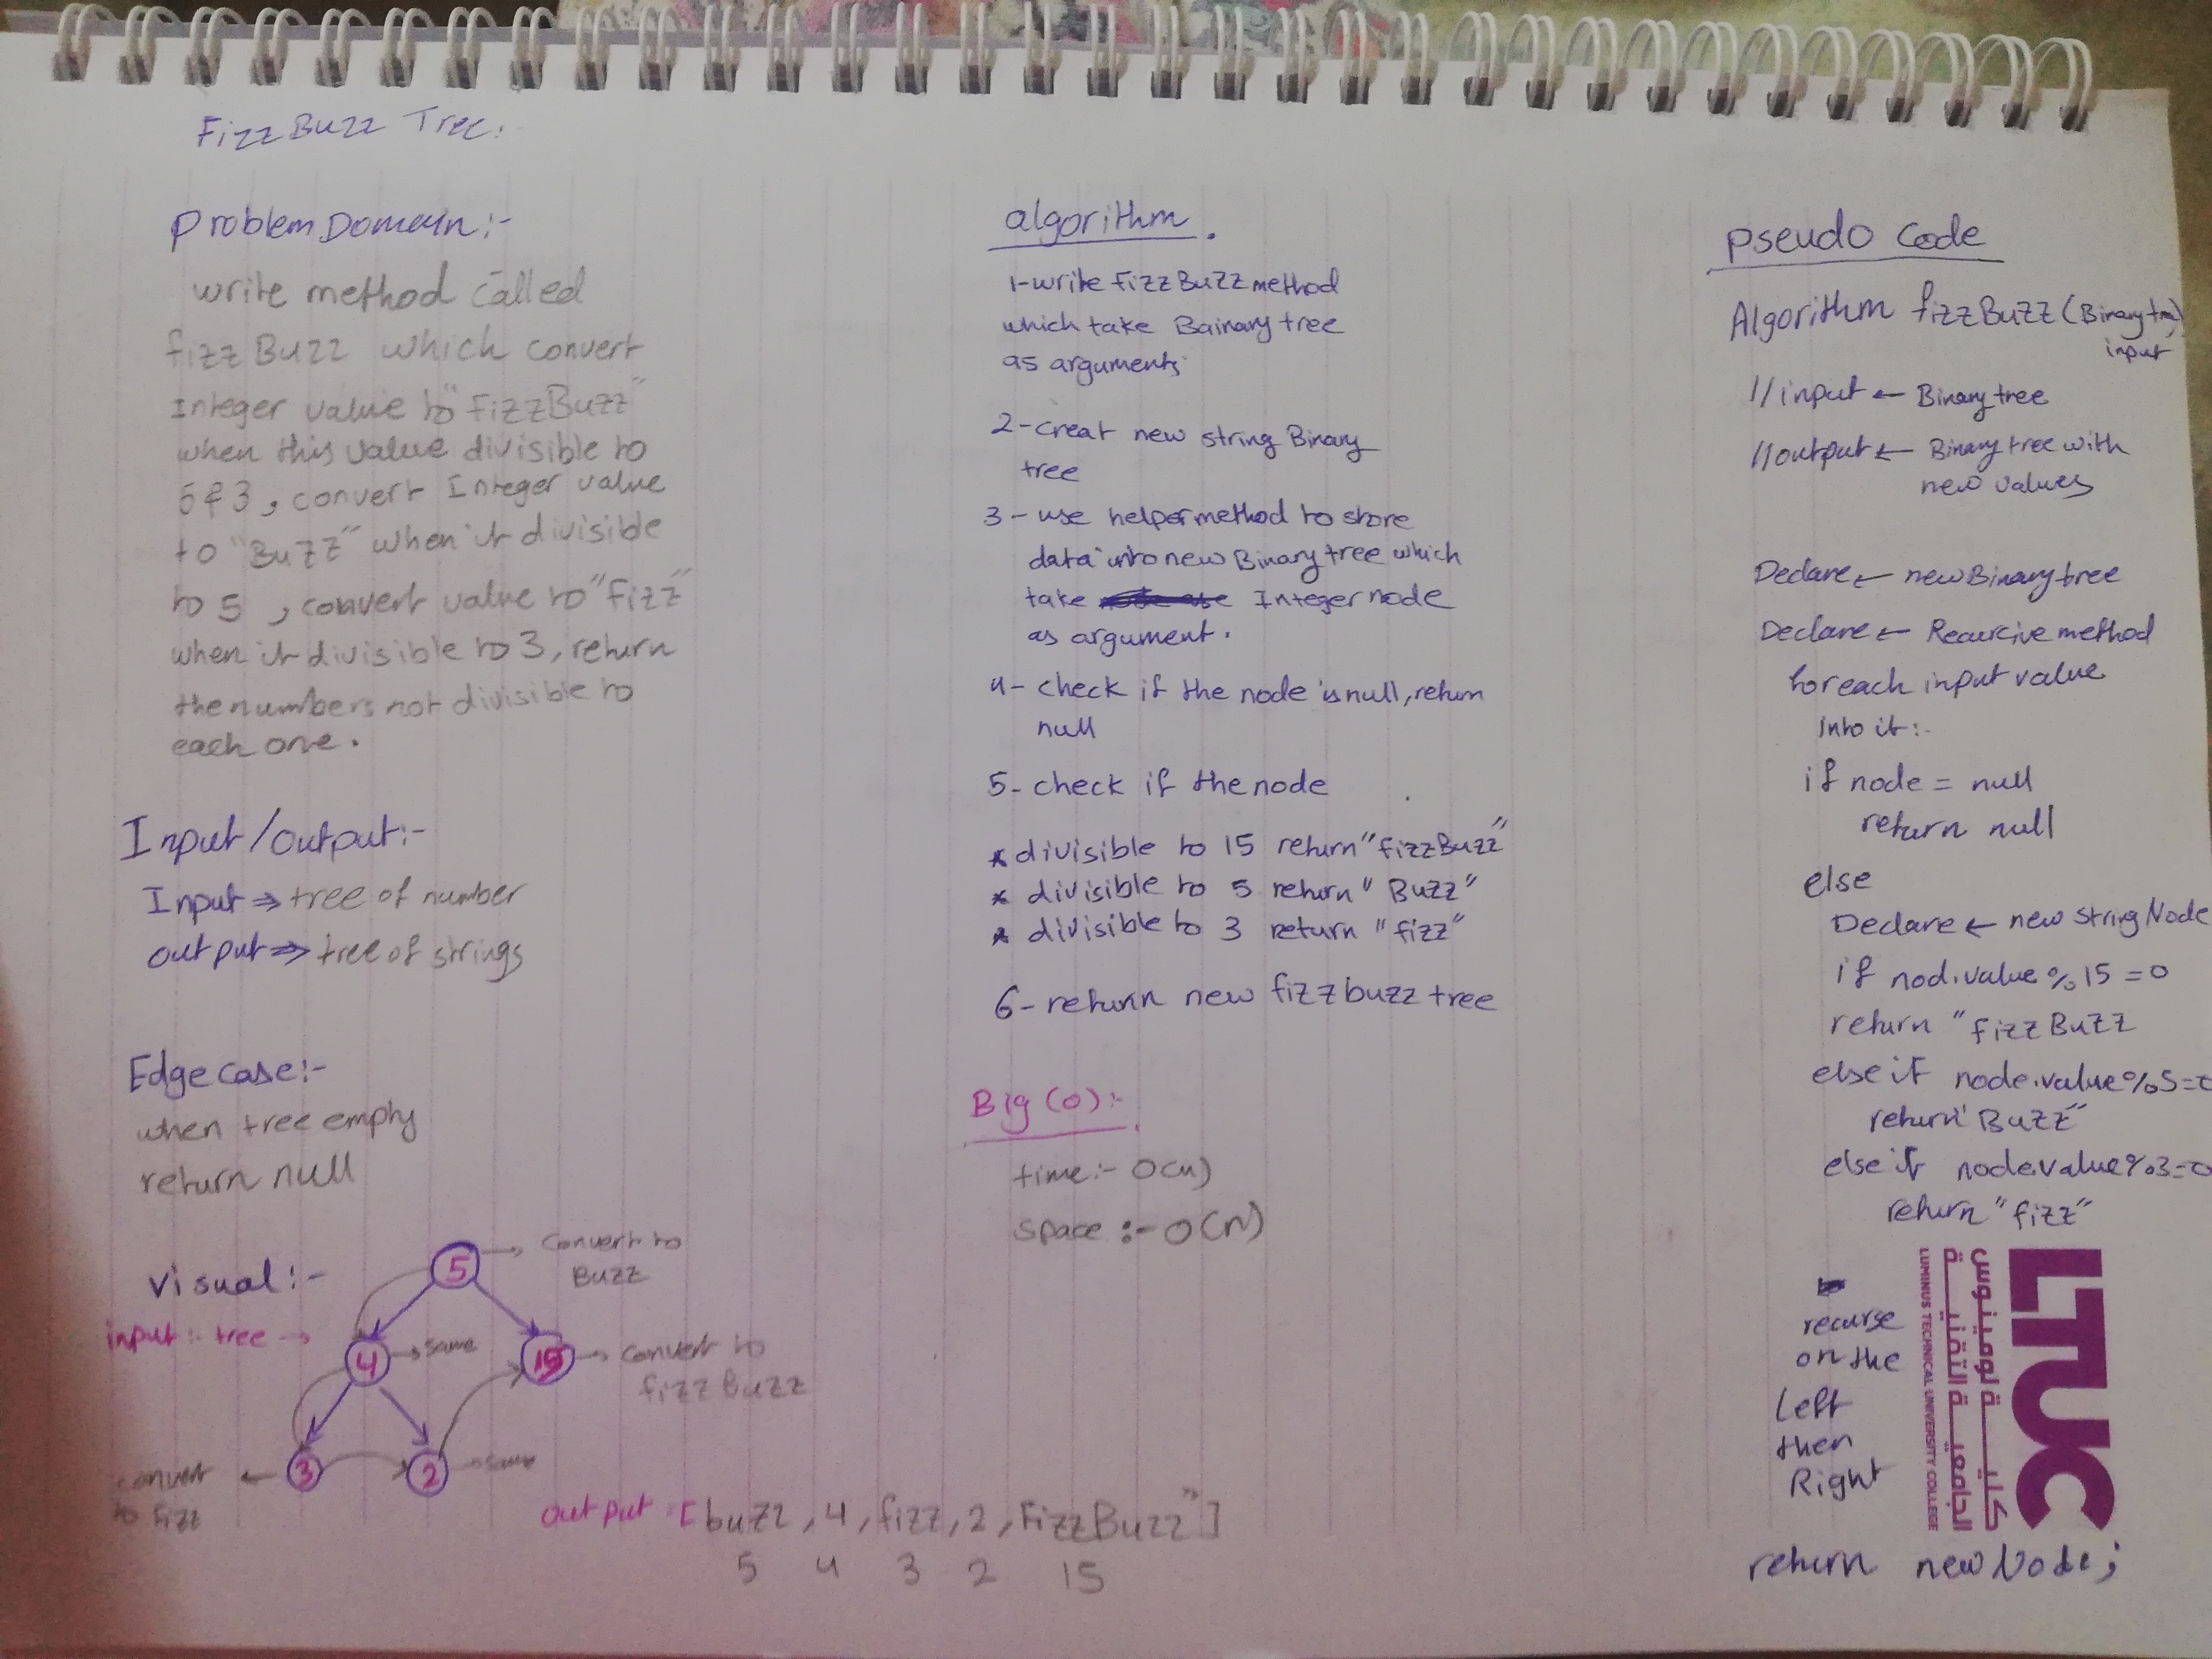 FizzBuzz Tree:-
Problem Domain:-
write method called
fizzBuzz which convert
Integer value to "FizzBuzz"
when this value divisible to
5 & 3, convert Integer value
to "BuZZ" when it divisible
to 5 , convert value to "fizz"
when it divisible to 3, return
the numbers not divisible to
each one.
Input/output:-
Input ⇒ tree of number
output ⇒ tree of strings
Edge case:-
when tree empty
return null
Visual:-
input:- tree →
5 → Convert to
Buzz
4 → same
15 → convert to
fizzBuzz
3
convert
to Fizz
2 → same
output [buzz, 4, fizz, 2, FizzBuzz"]
5 4 3 2 15
algorithm.
1-write FizzBuZZ method
which take Bainary tree
as arguments
2-creat new string Binary
tree
3- use helper method to store
data into new Binary tree which
take Integer node
as argument.
4- check if the node is null, return
null
5- check if the node
* divisible to 15 return "fizzBuzz"
* divisible to 5 return "Buzz"
* divisible to 3 return "fizz"
6- return new fizzbuzz tree
Big (O):-
time:- O(n)
space:- O(n)
pseudo code
Algorithm fizzBuzz (Binary tree)
input
// input ← Binary tree
// output ← Binary tree with
new values
Declare ← new Binary tree
Declare ← Recurcive method
for each input value
Into it:-
if node = null
return null
else
Declare ← new string Node
if nod.value % 15 = 0
return "fizzBuzz
else if node.value % 5 = 0
return "Buzz"
else if node.value % 3 = 0
return "fizz"
recurse
on the
Left
then
Right
return newNode;
LTUC
كلية لومينوس
الجامعية التقنية
LUMINUS TECHNICAL UNIVERSITY COLLEGE